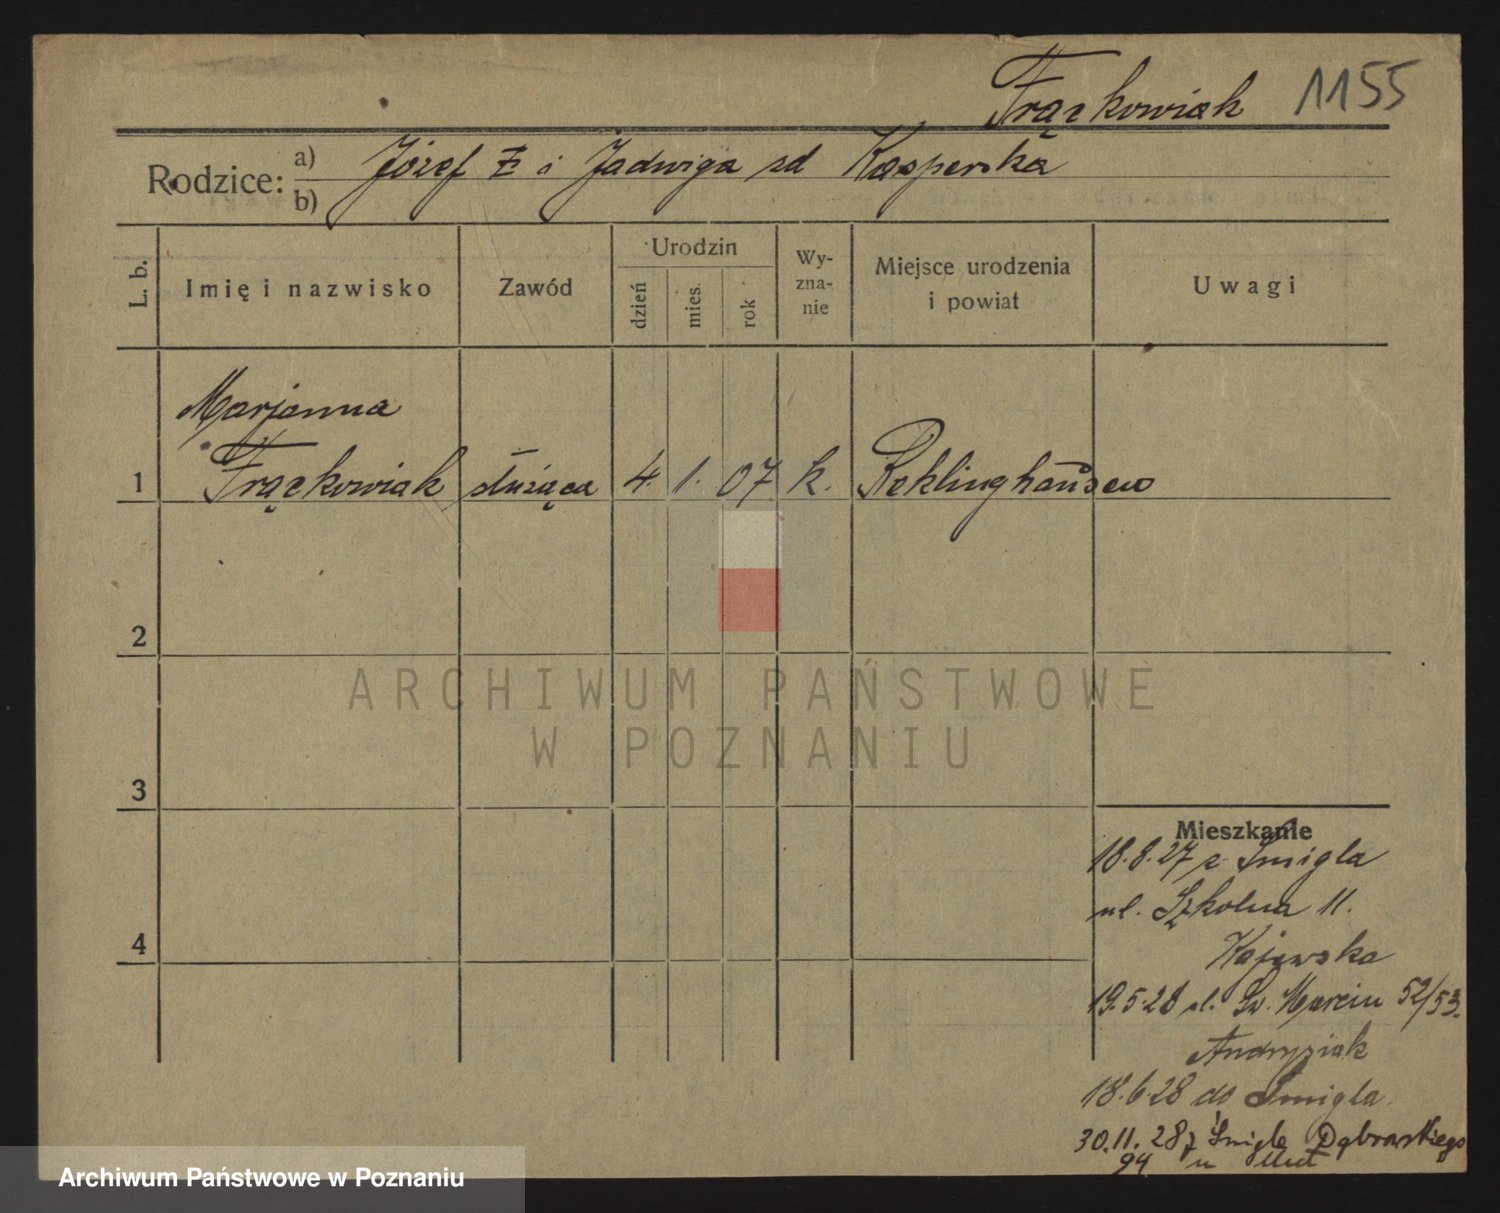 Frąckowiak 1155
Rodzice: a) Józef F. i Jadwiga zd Kasperska
b)
L. b.
Imię i nazwisko
Zawód
Urodzin
dzień
mies.
rok
Wy-
zna-
nie
Miejsce urodzenia
i powiat
Uwagi
Marjanna
1 Frąckowiak służąca 4. 1. 07 k. Reklinghausen
2
ARCHIWUM PAŃSTWOWE
W POZNANIU
3
Mieszkanie
18.8.27 z Śmigla
ul. Szkolna 11.
Kajewska
19.5.28 ul. Św. Marcin 52/53.
Andrysiak
4
18.6.28 do Śmigla.
30.11.28 z Śmigla Dąbrowskiego
94 u
Archiwum Państwowe w Poznaniu